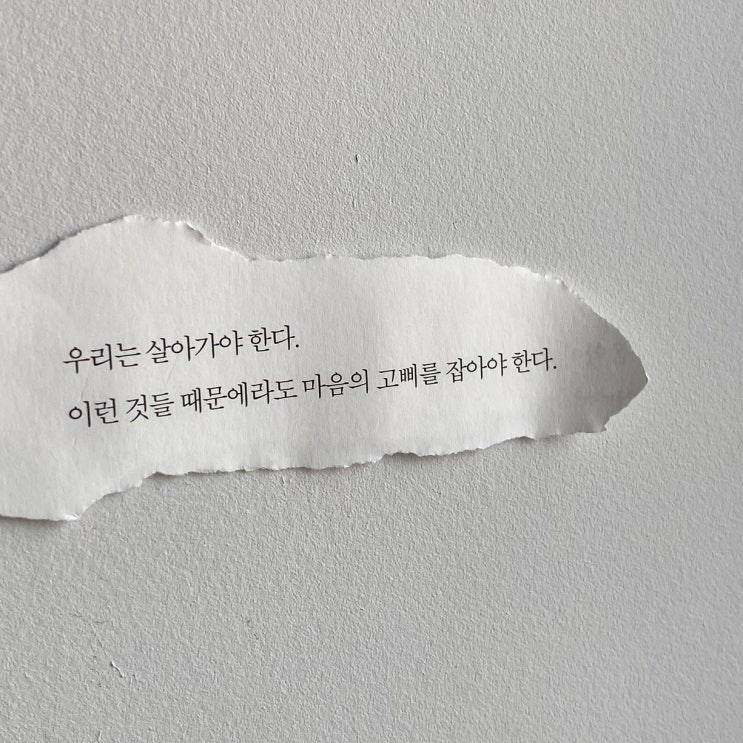 우리는 살아가야 한다.
이런 것들 때문에라도 마음의 고삐를 잡아야 한다.